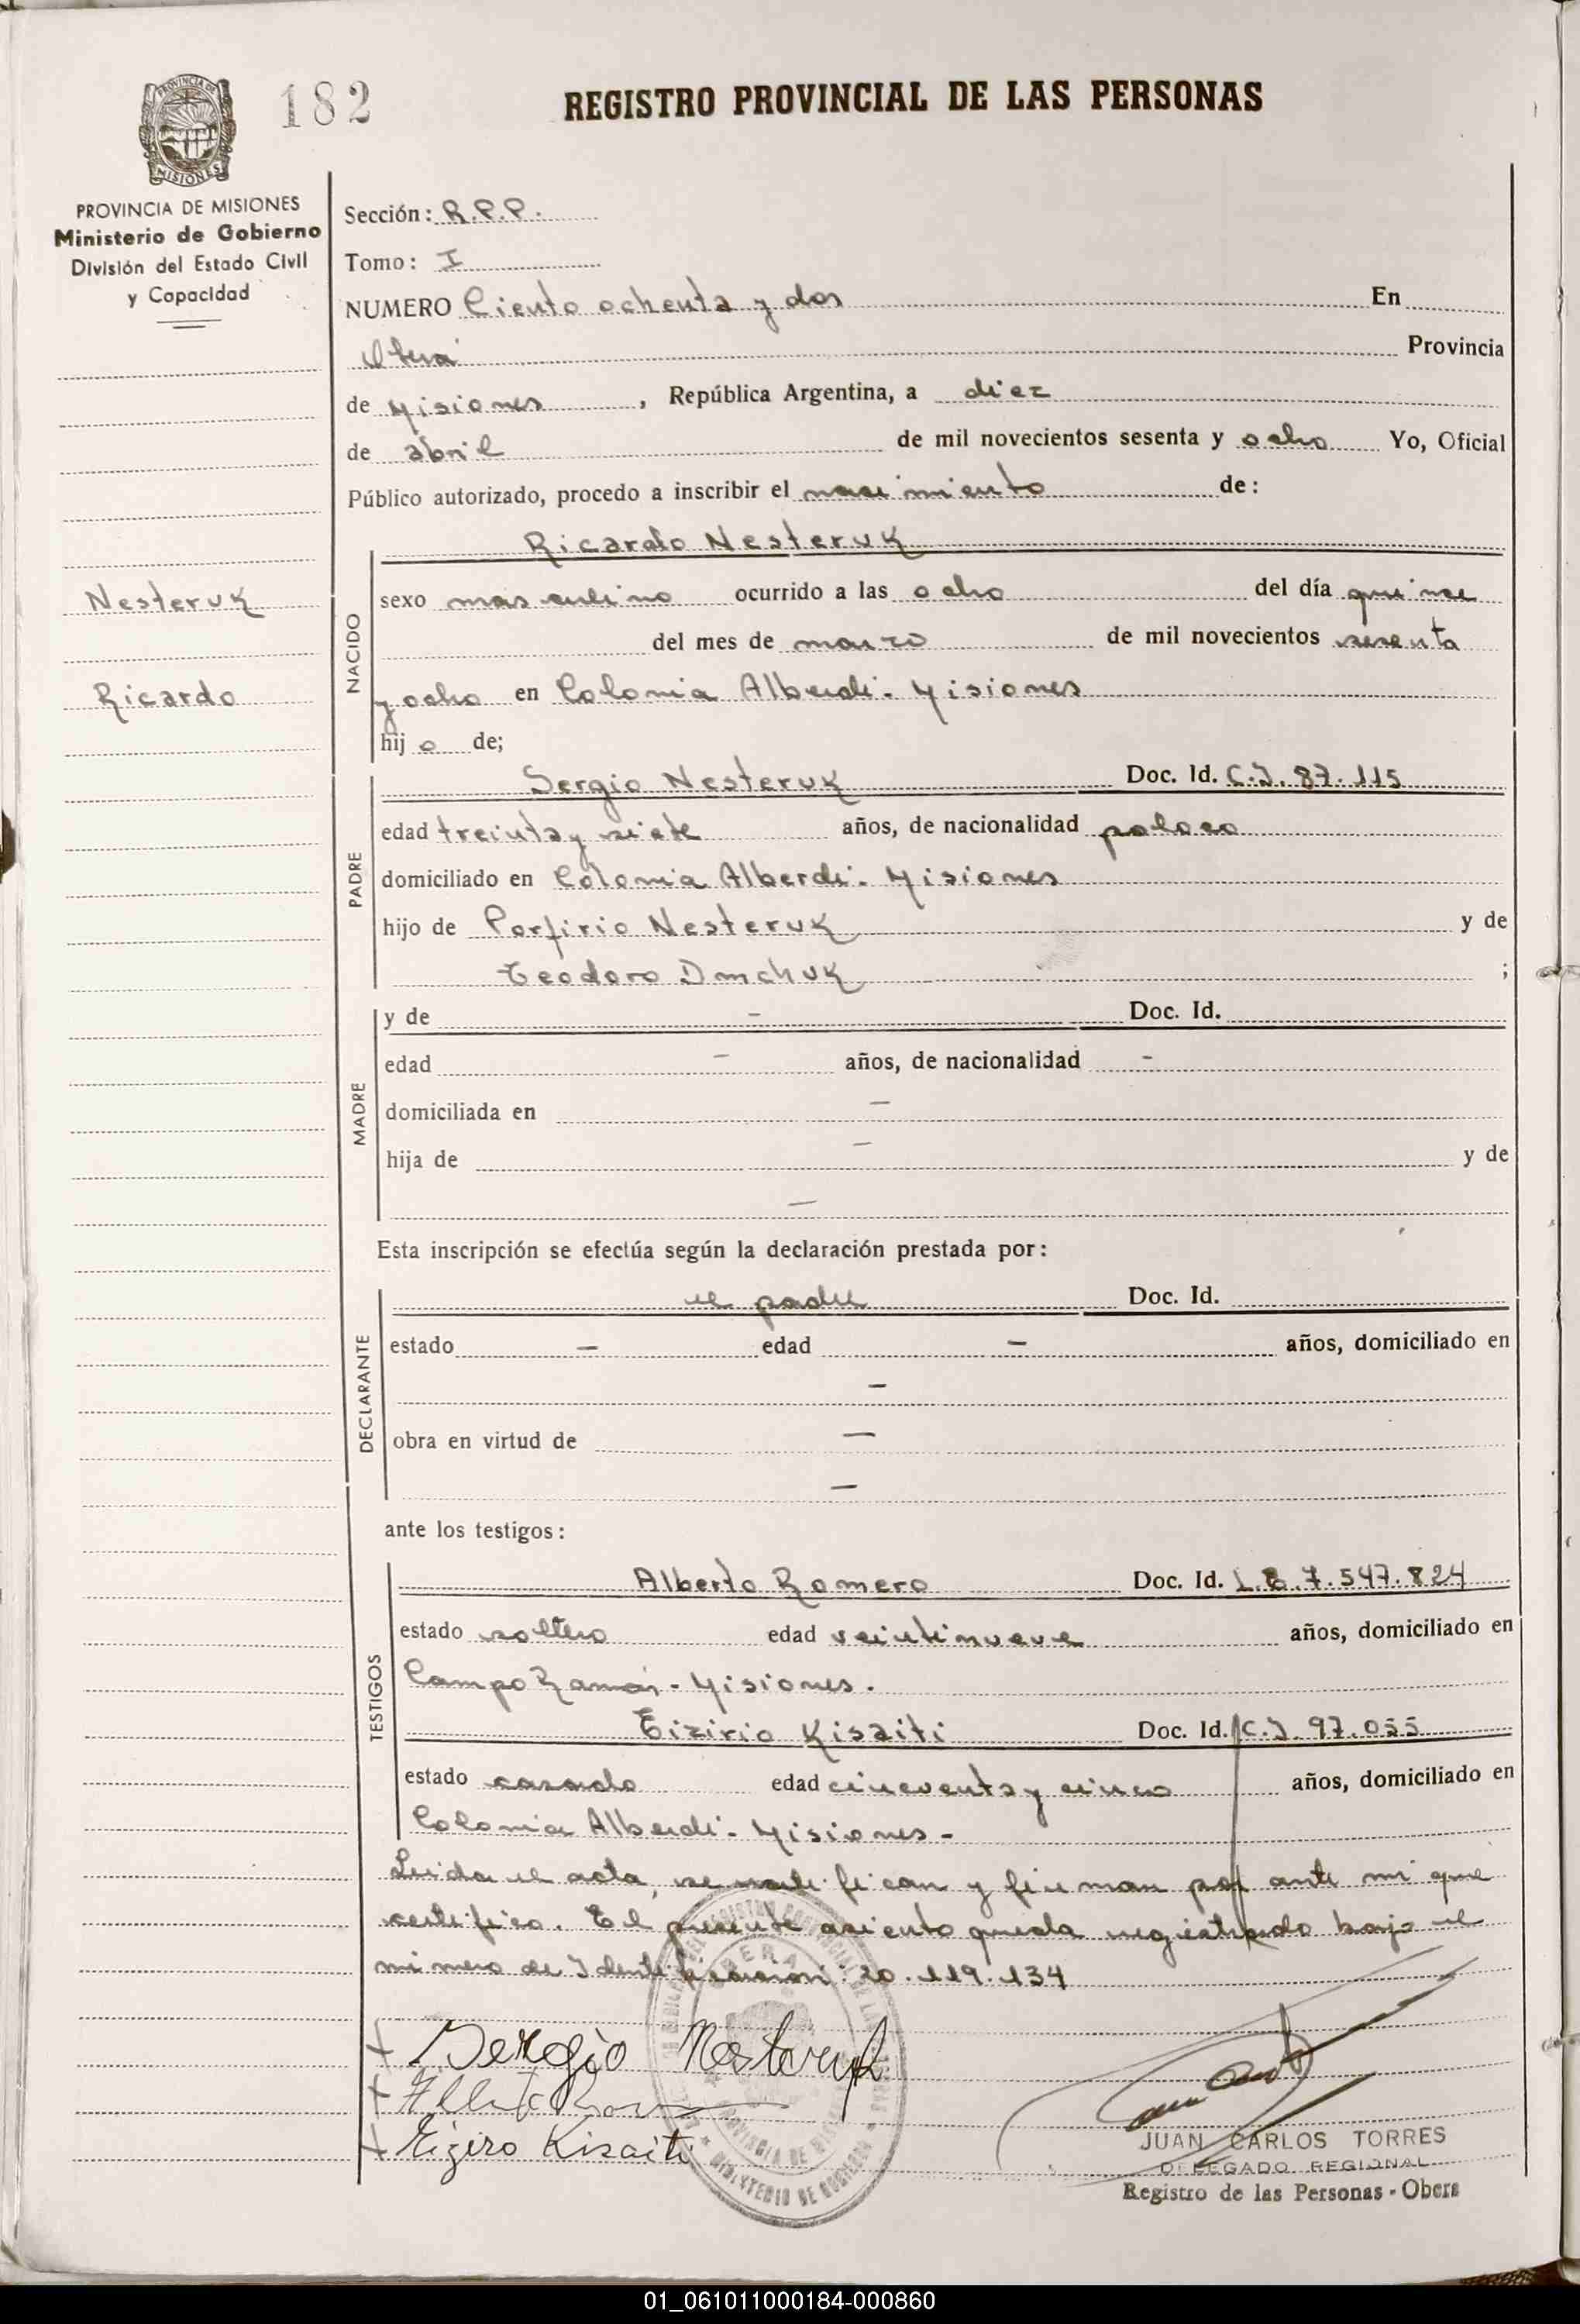 182
REGISTRO PROVINCIAL DE LAS PERSONAS
PROVINCIA DE
MISIONES
PROVINCIA DE MISIONES
Ministerio de Gobierno
División del Estado Civil
y Capacidad
Nesteruk
Ricardo
Sección: R.P.P.
Tomo: I
NUMERO Ciento ochenta y dos En
Oberá Provincia
de Misiones, República Argentina, a diez
de abril de mil novecientos sesenta y ocho Yo, Oficial
Público autorizado, procedo a inscribir el nacimiento de:
NACIDO
Ricardo Nesteruk
sexo masculino ocurrido a las ocho del día quince
del mes de marzo de mil novecientos sesenta
y ocho en Colonia Alberdi - Misiones
hijo de;
PADRE
Sergio Nesteruk Doc. Id. C.I. 87.115
edad treinta y siete años, de nacionalidad polaco
domiciliado en Colonia Alberdi - Misiones
hijo de Porfirio Nesteruk y de
Teodoro Dmchuk ;
MADRE
y de - Doc. Id.
edad - años, de nacionalidad -
domiciliada en -
hija de - y de
-
Esta inscripción se efectúa según la declaración prestada por:
DECLARANTE
el padre Doc. Id.
estado - edad - años, domiciliado en
-
obra en virtud de -
-
ante los testigos:
TESTIGOS
Alberto Romero Doc. Id. L.E. 7.547.824
estado soltero edad veintinueve años, domiciliado en
Campo Ramón - Misiones.
Eizirio Kisaiti Doc. Id. C.I. 97.055
estado casado edad cincuenta y cinco años, domiciliado en
Colonia Alberdi - Misiones -
Leida el acta, se ratifican y firman por ante mi que
certifico. El presente asiento queda registrado bajo el
número de Identificación: 20.119.134
+ Sergio Nesteruk
+
+ Eiziro Kisaiti
JUAN CARLOS TORRES
DELEGADO REGIONAL
Registro de las Personas - Obera
01_061011000184-000860